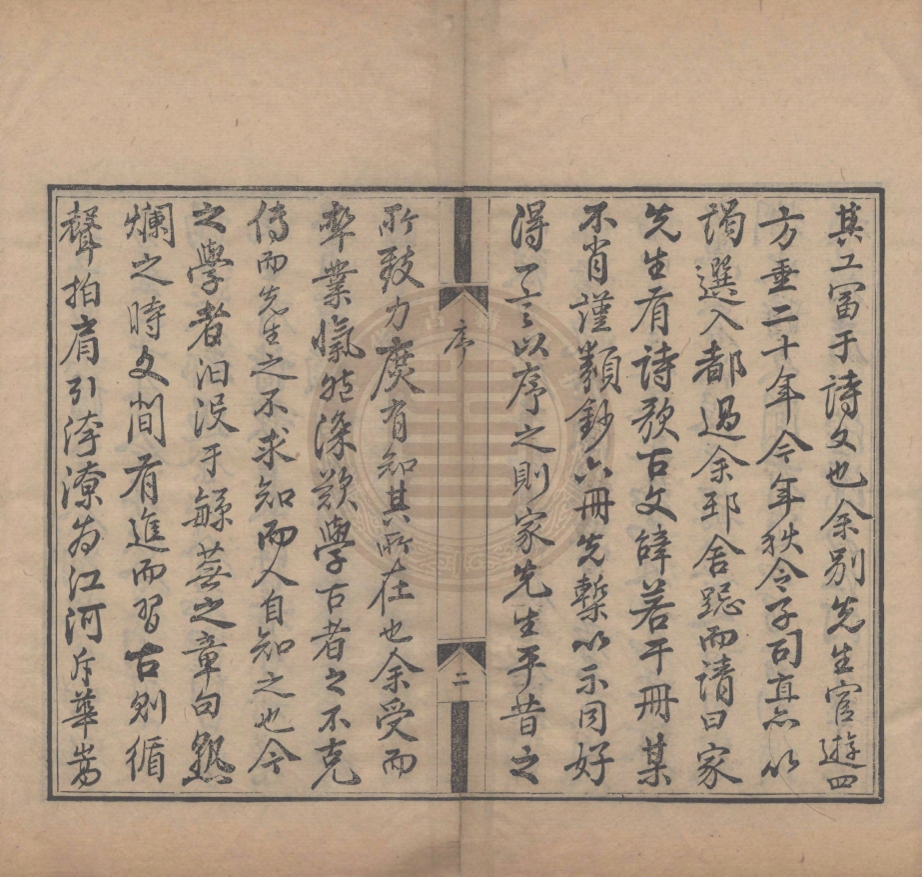 其工富于詩文也余別先生官遊四
方垂二十年今年秩令子司直亦以
謁選入都過余邸舍跽而請曰家
先生有詩歌古文辭若干冊某
不肖謹類鈔六冊先槧以示同好
得一言以序之則家先生平昔之
序
二
所致力庶有知其所在也余受而
卒業愾然深歎學古者之不克
傳而先生之不求知而人自知之也今
之學者汩没于繇蕪之章句熟
爛之時文間有進而習古則循
聲拍肩引洿潦為江河斥華嵩